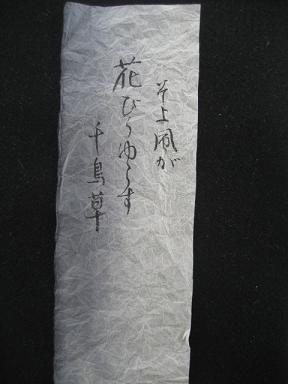 そよ風が
花びらゆらす
千鳥草